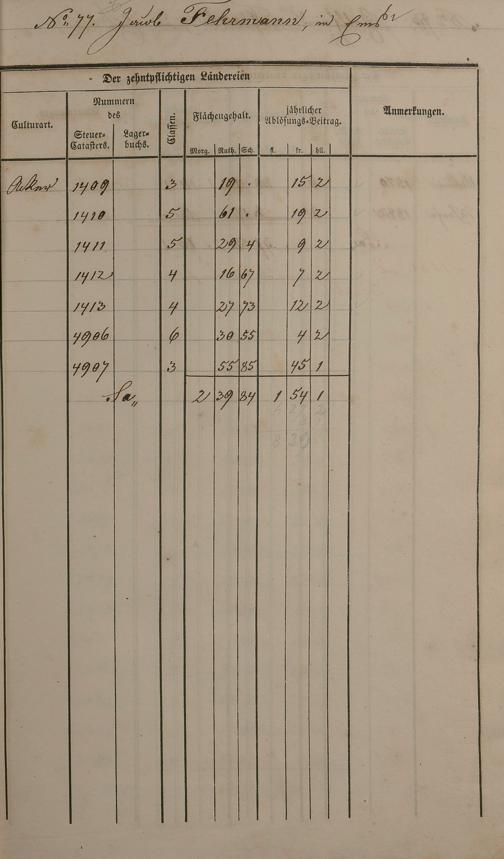 No. 77. Jacob Fehrmann, in Ems
Der zehntpflichtigen Ländereien
Culturart. Nummern des Steuer-Catasters. Lager-buchs. Classen. Flächengehalt. Morg. Ruth. Sch. jährlicher Ablösungs-Beitrag. fl. kr. hll. Anmerkungen.
Acker 1409 3 19 . 15 2
1410 5 61 . 19 2
1411 5 29 4 9 2
1412 4 16 67 7 2
1413 4 27 73 12 2
4906 6 30 55 4 2
4907 3 55 85 45 1
Sa„ 2 39 84 1 54 1